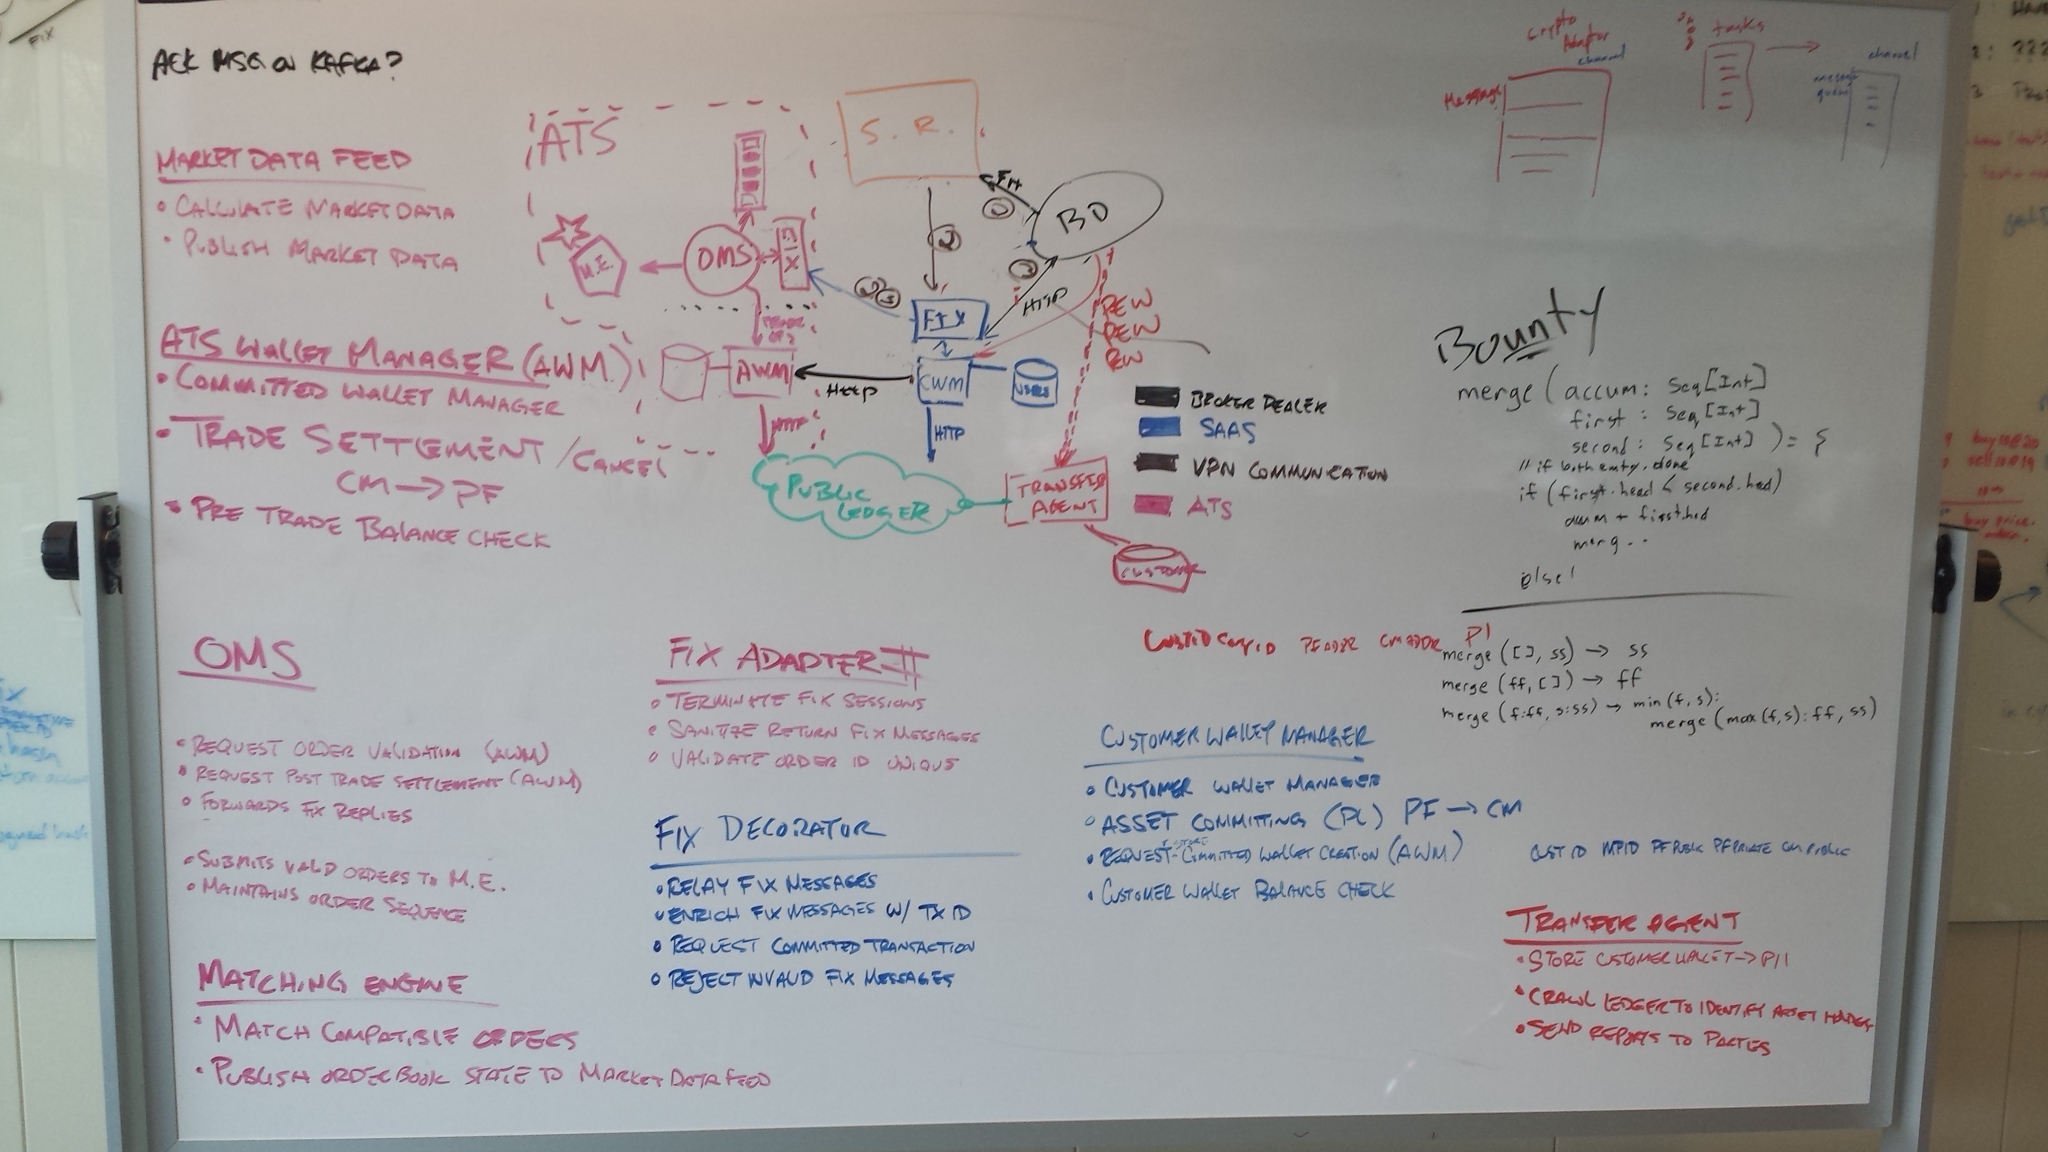 ACK MSG ON KAFKA?
MARKET DATA FEED
• CALCULATE MARKET DATA
• PUBLISH MARKET DATA
ATS WALLET MANAGER (AWM)
• COMMITTED WALLET MANAGER
• TRADE SETTLEMENT / CANCEL
CM → PF
• PRE TRADE BALANCE CHECK
ATS
S. R.
BD
OMS
M.E.
FIX
FIX
1
2
3
HTTP
PEW
PEW
PEW
AWM
HTTP
CWM
USERS
HTTP
HTTP
PUBLIC
LEDGER
TRANSFER
AGENT
CUSTOMER
BROKER DEALER
SAAS
VPN COMMUNICATION
ATS
Crypto
Adaptor
channel
Message
tasks
channel
message
queue
Bounty
merge (accum: Seq[Int]
first : Seq[Int]
second : Seq[Int] ) = {
// if both emty, done
if (first.head < second.hed)
accum + first.hed
merg..
else
merge ([], ss) → ss
merge (ff, []) → ff
merge (f:ff, s:ss) → min(f,s):
merge (max(f,s):ff, ss)
OMS
• REQUEST ORDER VALIDATION (AWM)
• REQUEST POST TRADE SETTLEMENT (AWM)
• FORWARDS FIX REPLIES
• SUBMITS VALID ORDERS TO M.E.
• MAINTAINS ORDER SEQUENCE
MATCHING ENGINE
• MATCH COMPATIBLE ORDERS
• PUBLISH ORDERBOOK STATE TO MARKET DATA FEED
FIX ADAPTER II
• TERMINATE FIX SESSIONS
• SANITIZE RETURN FIX MESSAGES
• VALIDATE ORDER ID UNIQUE
FIX DECORATOR
• RELAY FIX MESSAGES
• ENRICH FIX MESSAGES W/ TX ID
• REQUEST COMMITTED TRANSACTION
• REJECT INVALID FIX MESSAGES
CUSTID COMPID PFADDR CMADDR PI
CUSTOMER WALLET MANAGER
• CUSTOMER WALLET MANAGER
• ASSET COMMITTINGS (PL) PF → CM
• REQUEST COMMITTED WALLET CREATION (AWM)
• CUSTOMER WALLET BALANCE CHECK
CUST ID MPID PFPUBLIC PFPRIVATE CMPUBLIC
TRANSFER AGENT
• STORE CUSTOMER WALLET → PII
• CRAWL LEDGER TO IDENTIFY ASSET HOLDERS
• SEND REPORTS TO PARTIES